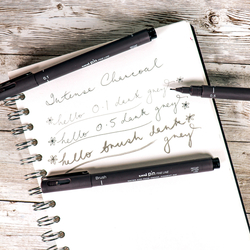 Intense Charcoal
hello 0.1 dark grey
hello 0.5 dark grey
hello brush dark grey
uni pin
Brush
uni pin